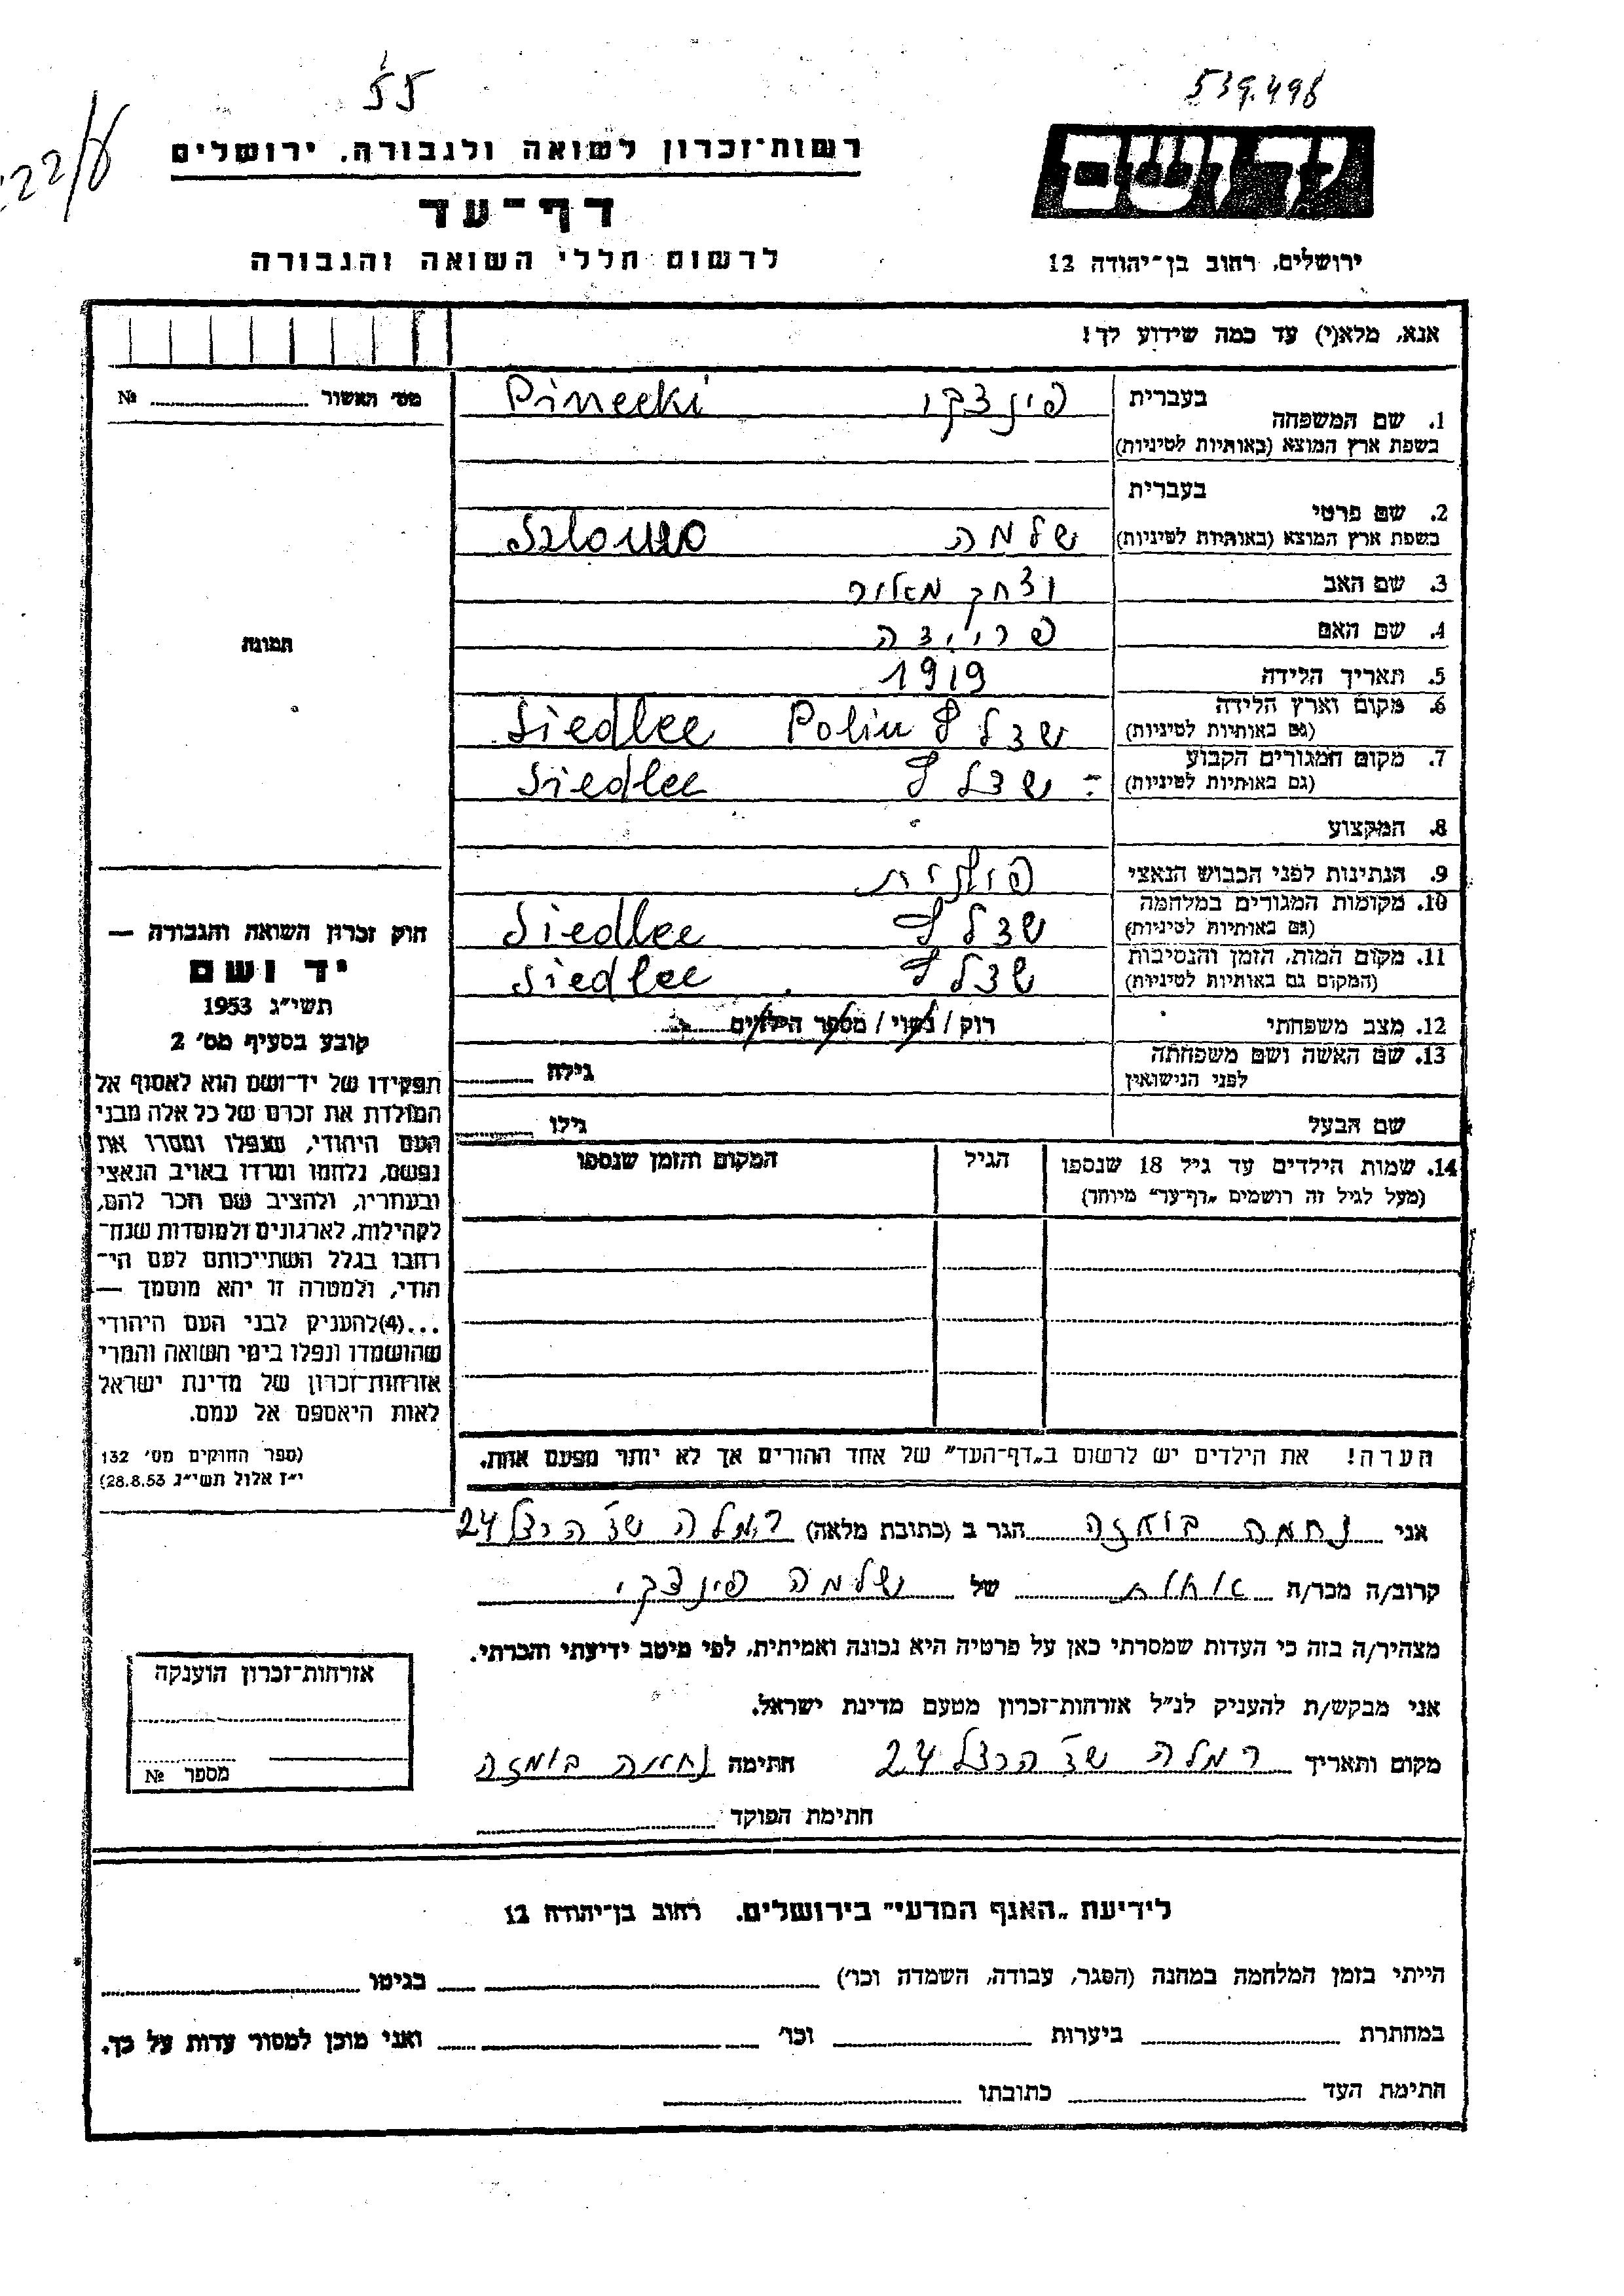 55
539.498
רשות־זכרון לשואה ולגבורה, ירושלים
דף־עד
לרשום חללי השואה והגבורה
יד ושם
ירושלים, רחוב בן־יהודה 12
אנא, מלא(י) עד כמה שידוע לך!
מס׳ האשור № 
1. שם המשפחה בעברית פינצקי Pinecki
בשפת ארץ המוצא (באותיות לטיניות)
2. שם פרטי בעברית
בשפת ארץ המוצא (באותיות לטיניות) שלמה Szlomo
3. שם האב יצחק מאיר
4. שם האם
5. תאריך הלידה 1919
6. מקום וארץ הלידה
(גם באותיות לטיניות) שדלץ Polin Siedlec
7. מקום המגורים הקבוע
(גם באותיות לטיניות) שדלץ Siedlec
8. המקצוע
9. הנתינות לפני הכבוש הנאצי פולנית
10. מקומות המגורים במלחמה
(גם באותיות לטיניות) שדלץ Siedlec
11. מקום המות, הזמן והנסיבות
(המקום גם באותיות לטיניות) שדלץ Siedlec
12. מצב משפחתי רוק / נשוי / מספר הילדים
13. שם האשה ושם משפחתה
לפני הנישואין גילה
שם הבעל גילו
14. שמות הילדים עד גיל 18 שנספו הגיל המקום והזמן שנספו
(מעל לגיל זה רושמים „דף־עד״ מיוחד)
תמונה
חוק זכרון השואה והגבורה —
יד ושם
תשי״ג 1953
קובע בסעיף מס׳ 2
תפקידו של יד־ושם הוא לאסוף אל
המולדת את זכרם של כל אלה מבני
העם היהודי, שנפלו ומסרו את
נפשם, נלחמו ומרדו באויב הנאצי
ובעוזריו, ולהציב שם וזכר להם,
לקהילות, לארגונים ולמוסדות שנח־
רבו בגלל השתייכותם לעם הי־
הודי, ולמטרה זו יהא מוסמך —
...(4)להעניק לבני העם היהודי
שהושמדו ונפלו בימי השואה והמרי
אזרחות־זכרון של מדינת ישראל
לאות היאספם אל עמם.
(ספר החוקים מס׳ 132
י״ז אלול תשי״ג 28.8.53)
הערה! את הילדים יש לרשום ב„דף־העד״ של אחד ההורים אך לא יותר מפעם אחת.
אני נחמה הגר ב (כתובת מלאה) רמלה שד הרצל 24
קרוב/ה מכר/ה אחות של שלמה פינצקי
מצהיר/ה בזה כי העדות שמסרתי כאן על פרטיה היא נכונה ואמיתית, לפי מיטב ידיעתי והכרתי.
אני מבקש/ת להעניק לנ״ל אזרחות־זכרון מטעם מדינת ישראל.
מקום ותאריך רמלה שד הרצל 24 חתימה נחמה
חתימת הפוקד
אזרחות־זכרון הוענקה
מספר №
לידיעת „האגף המדעי״ בירושלים. רחוב בן־יהודה 12
הייתי בזמן המלחמה במחנה (הסגר, עבודה, השמדה וכו׳) בגיטו
במחתרת ביערות וכו׳ ואני מוכן למסור עדות על כך.
חתימת העד כתובתו